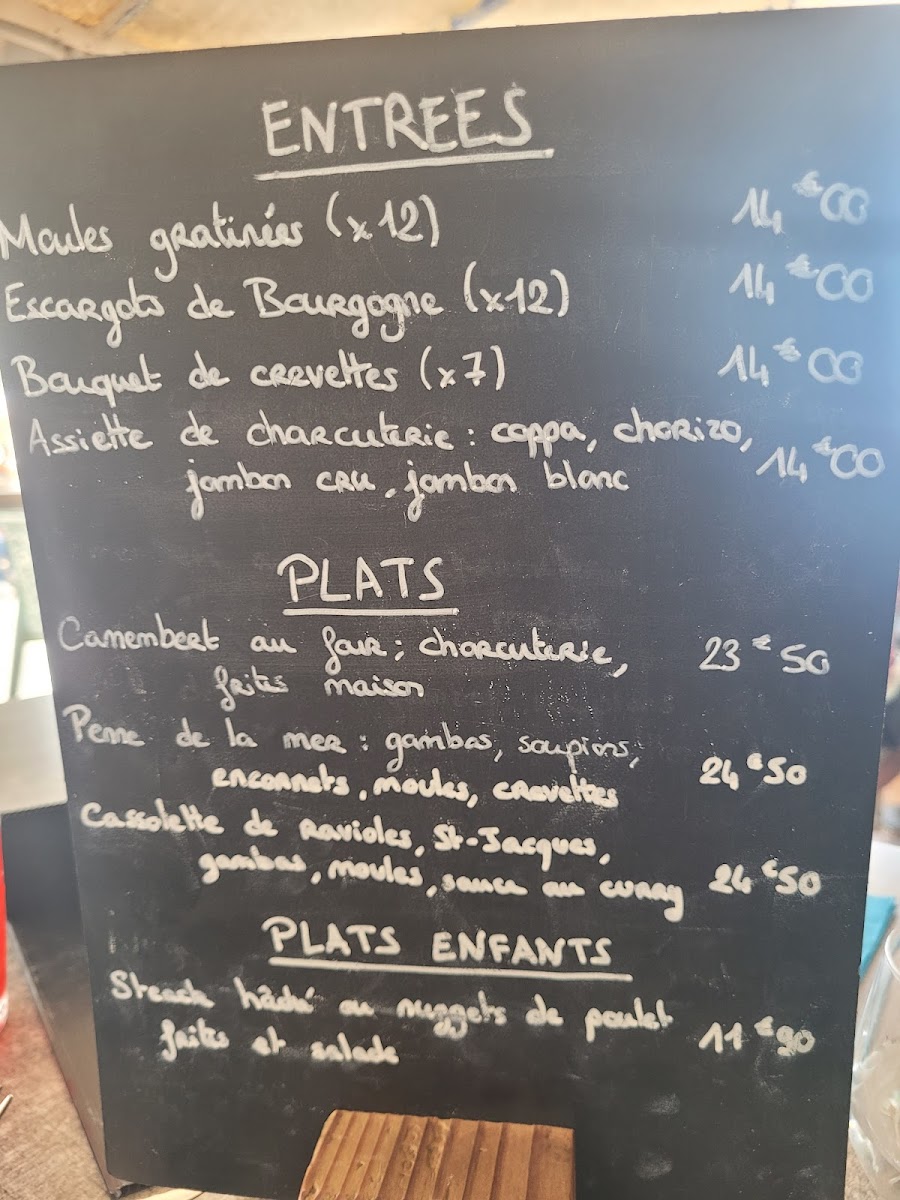 ENTREES
Moules gratinées (x12) 14€00
Escargots de Bourgogne (x12) 14€00
Bouquet de crevettes (x7) 14€00
Assiette de charcuterie : coppa, chorizo,
jambon cru, jambon blanc 14€00
PLATS
Camembert au four ; charcuterie, 23€50
frites maison
Penne de la mer : gambas, soupions,
enconnets, moules, crevettes 24€50
Cassolette de Ravioles, St-Jacques,
gambas, moules, sauce au curry 24€50
PLATS ENFANTS
Steack hâché ou nuggets de poulet
frites et salade 11€90